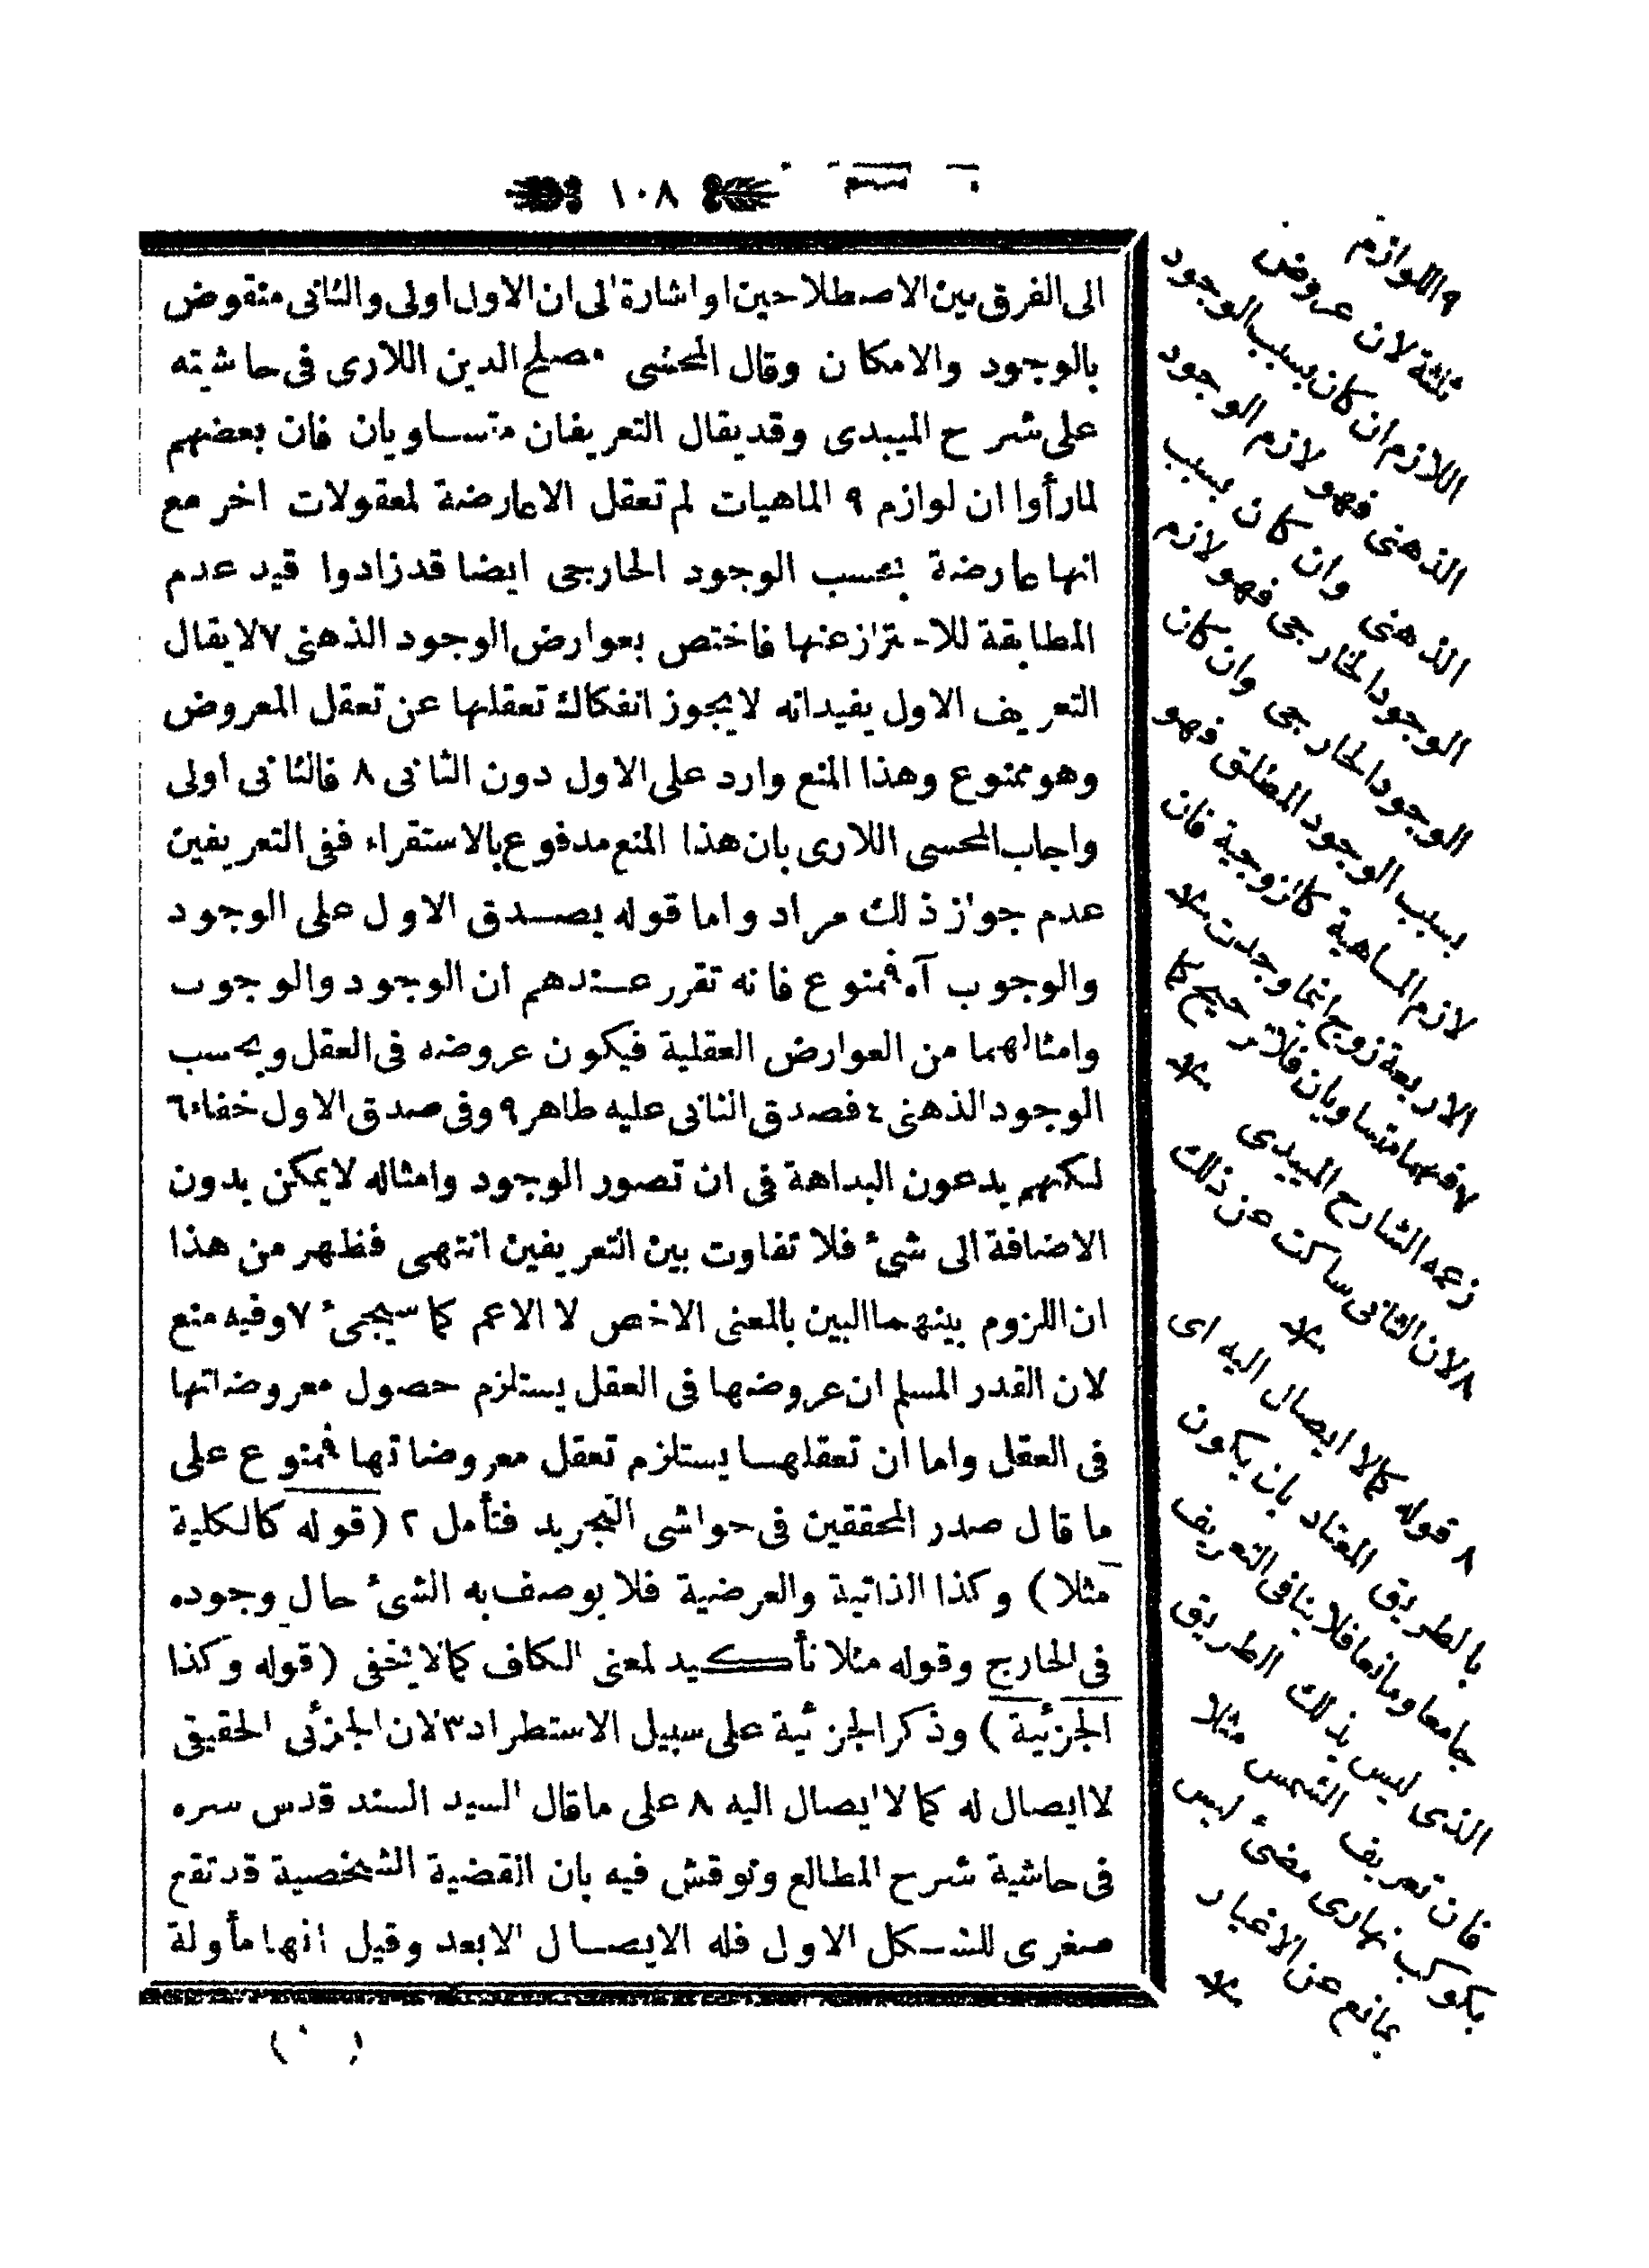 ١٠٨
الى الفرق بين الاصطلاحين او اشارة الى ان الاول اولى والثانى منقوض
بالوجود والامكان وقال المحشى مصلح الدين اللارى فى حاشيته
على شرح الميبدى وقد يقال التعريفان متساويان فان بعضهم
لما رأوا ان لوازم ٩ الماهيات لم تعقل الا عارضة لمعقولات اخر مع
انها عارضة بحسب الوجود الخارجى ايضا قد زادوا قيد عدم
المطابقة للاحتراز عنها فاختص بعوارض الوجود الذهنى ٧ لا يقال
التعريف الاول يفيد انه لا يجوز انفكاك تعقلها عن تعقل المعروض
وهو ممنوع وهذا المنع وارد على الاول دون الثانى ٨ فالثانى اولى
واجاب المحسى اللارى بان هذا المنع مدفوع بالاستقراء ففى التعريفين
عدم جواز ذلك مراد واما قوله يصدق الاول على الوجود
والوجوب آه فممنوع فانه تقرر عندهم ان الوجود والوجوب
وامثالهما من العوارض العقلية فيكون عروضه فى العقل وبحسب
الوجود الذهنى ٤ فصدق الثانى عليه ظاهر ٩ وفى صدق الاول خفاء ٦
لكنهم يدعون البداهة فى ان تصور الوجود وامثاله لا يمكن بدون
الاضافة الى شئ فلا تفاوت بين التعريفين انتهى فظهر من هذا
ان اللزوم بينهما البين بالمعنى الاخص لا الاعم كما سيجئ ٧ وفيه منع
لان القدر المسلم ان عروضها فى العقل يستلزم حصول معروضاتها
فى العقل واما ان تعقلهسا يستلزم تعقل معروضاتها فممنوع على
ما قال صدر المحققين فى حواشى التجريد فتأمل ٢ (قوله كالكلية
مثلا) وكذا الذاتية والعرضية فلا يوصف به الشئ حال وجوده
فى الخارج وقوله مثلا تأكيد لمعنى الكاف كما لا يخفى (قوله وكذا
الجزئية) وذكر الجزئية على سبيل الاستطراد ٣ لان الجزئى الحقيقى
لا ايصال له كما لا ايصال اليه ٨ على ما قال السيد السند قدس سره
فى حاشية شرح المطالع ونوقش فيه بان القضية الشخصية قد تقع
صغرى للشكل الاول فله الايصال الابعد وقيل انها مأولة
٩ اللوازم
ثلثة لان عروض
اللازم ان كان بسبب الوجود
الذهنى فهو لازم الوجود
الذهنى وان كان بسبب
الوجود الخارجى فهو لازم
الوجود الخارجى وان كان
بسبب الوجود المطلق فهو
لازم الماهية كالزوجية فان
الاربعة زوج اينما وجدت منلا
٧ فهما متساويان فلا ترجيح كما
زعمه الشارح الميبدى منلا
٨ لان الثانى ساكت عن ذلك
منلا
٨ قوله كما لا ايصال اليه اى
بالطريق المعتاد بان يكون
جامعا ومانعا فلا ينافى التعريف
الذى ليس بذلك الطريق
فان تعريف الشمس مثلا
بكوكب نهارى مضئ ليس
بمانع عن الاغيار
منلا